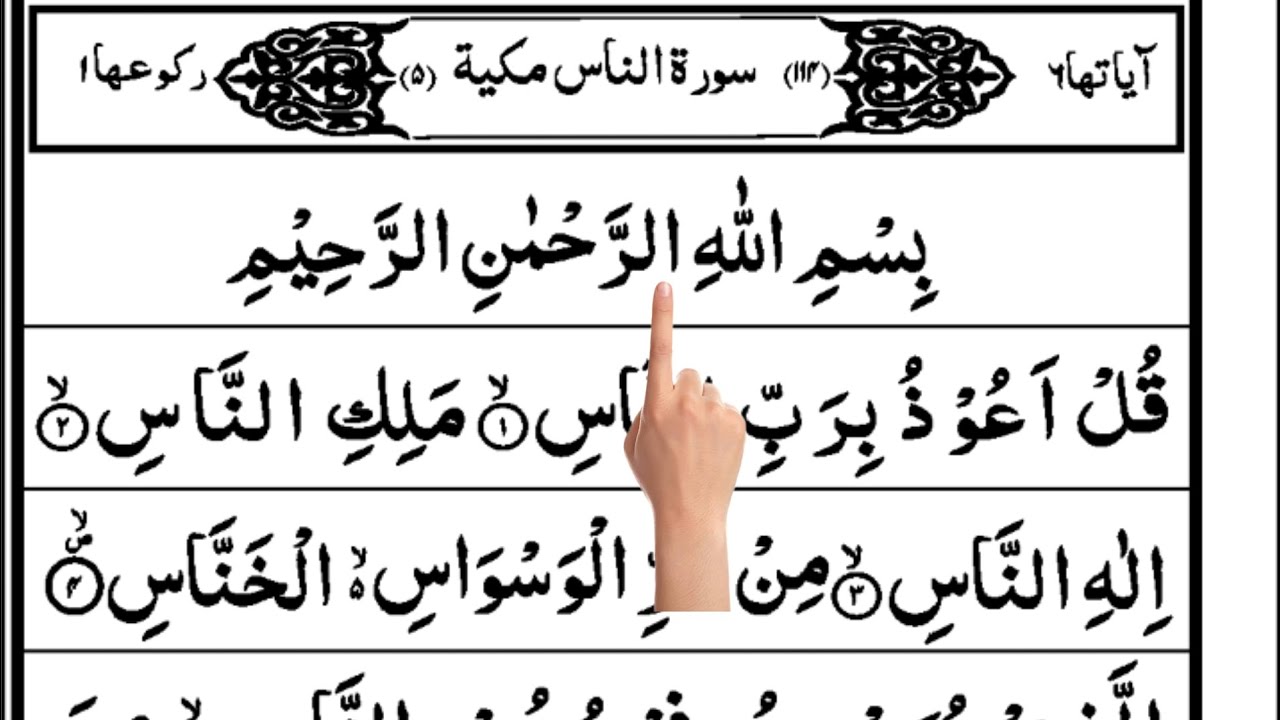 آياتها ٦ (١١٤) سورة الناس مكية (٥) ركوعها ١
بِسْمِ اللّٰهِ الرَّحْمٰنِ الرَّحِيْمِ
قُلْ اَعُوْذُ بِرَبِّ النَّاسِ ۙ﴿۱﴾ مَلِكِ النَّاسِ ۙ﴿۲﴾
اِلٰهِ النَّاسِ ۙ﴿۳﴾ مِنْ الْوَسْوَاسِ ۙ۵ الْخَنَّاسِ ۪ۙ﴿۴﴾